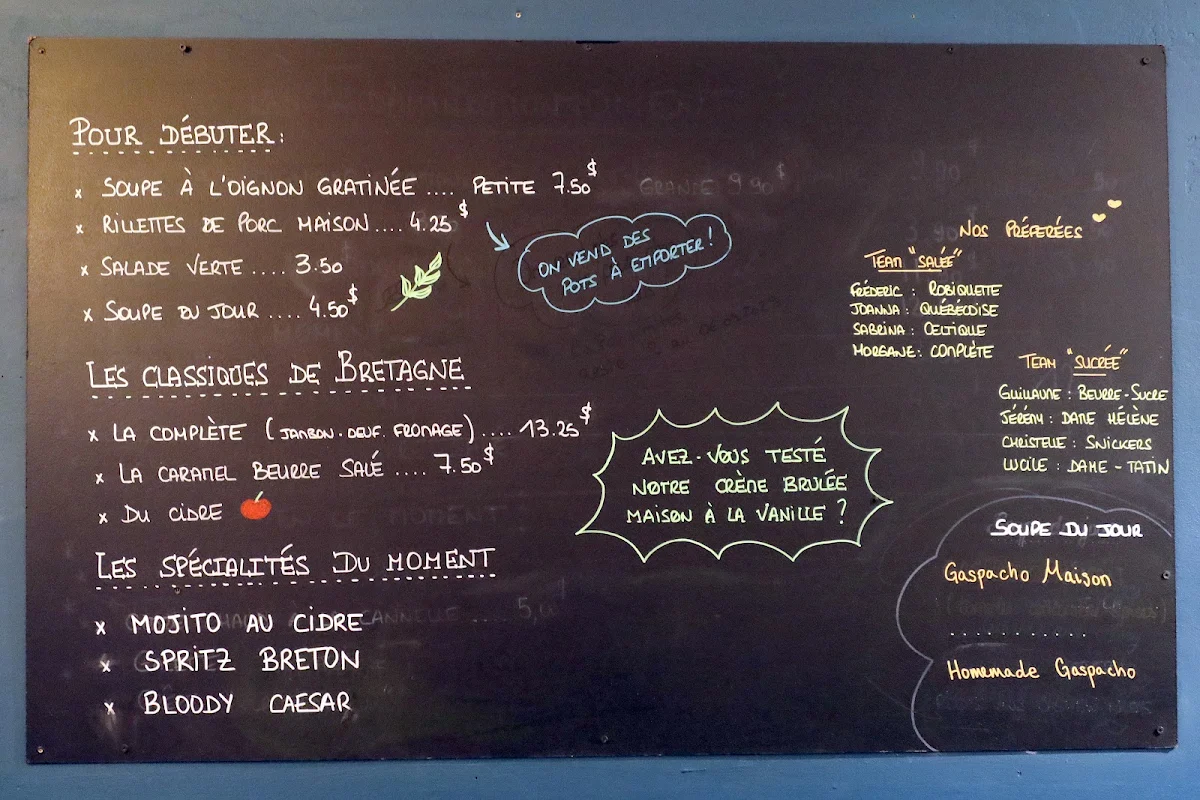 POUR DÉBUTER:
x SOUPE À L'OIGNON GRATINÉE .... PETITE 7.50$ GRANDE 9.90$
x RILLETTES DE PORC MAISON .... 4.25$
x SALADE VERTE .... 3.50
x SOUPE DU JOUR .... 4.50$
ON VEND DES
POTS À EMPORTER!
LES CLASSIQUES DE BRETAGNE
x LA COMPLÈTE (JAMBON. OEUF. FROMAGE) .... 13.25$
x LA CARAMEL BEURRE SALÉ .... 7.50$
x DU CIDRE
LES SPÉCIALITÉS DU MOMENT
x MOJITO AU CIDRE
x SPRITZ BRETON
x BLOODY CAESAR
AVEZ-VOUS TESTÉ
NOTRE CRÈME BRULÉE
MAISON À LA VANILLE ?
NOS PRÉFÉRÉES
TEAM "SALÉE"
FRÉDERIC : ROBIQUETTE
JOANNA : QUÉBÉCOISE
SABRINA : CELTIQUE
MORGANE : COMPLÈTE
TEAM "SUCRÉE"
GUILLAUME : BEURRE-SUCRE
JÉRÉMY : DAME HÉLÈNE
CHRISTELLE : SNICKERS
LUCILE : DAME-TATIN
SOUPE DU JOUR
Gaspacho Maison
...........
Homemade Gaspacho